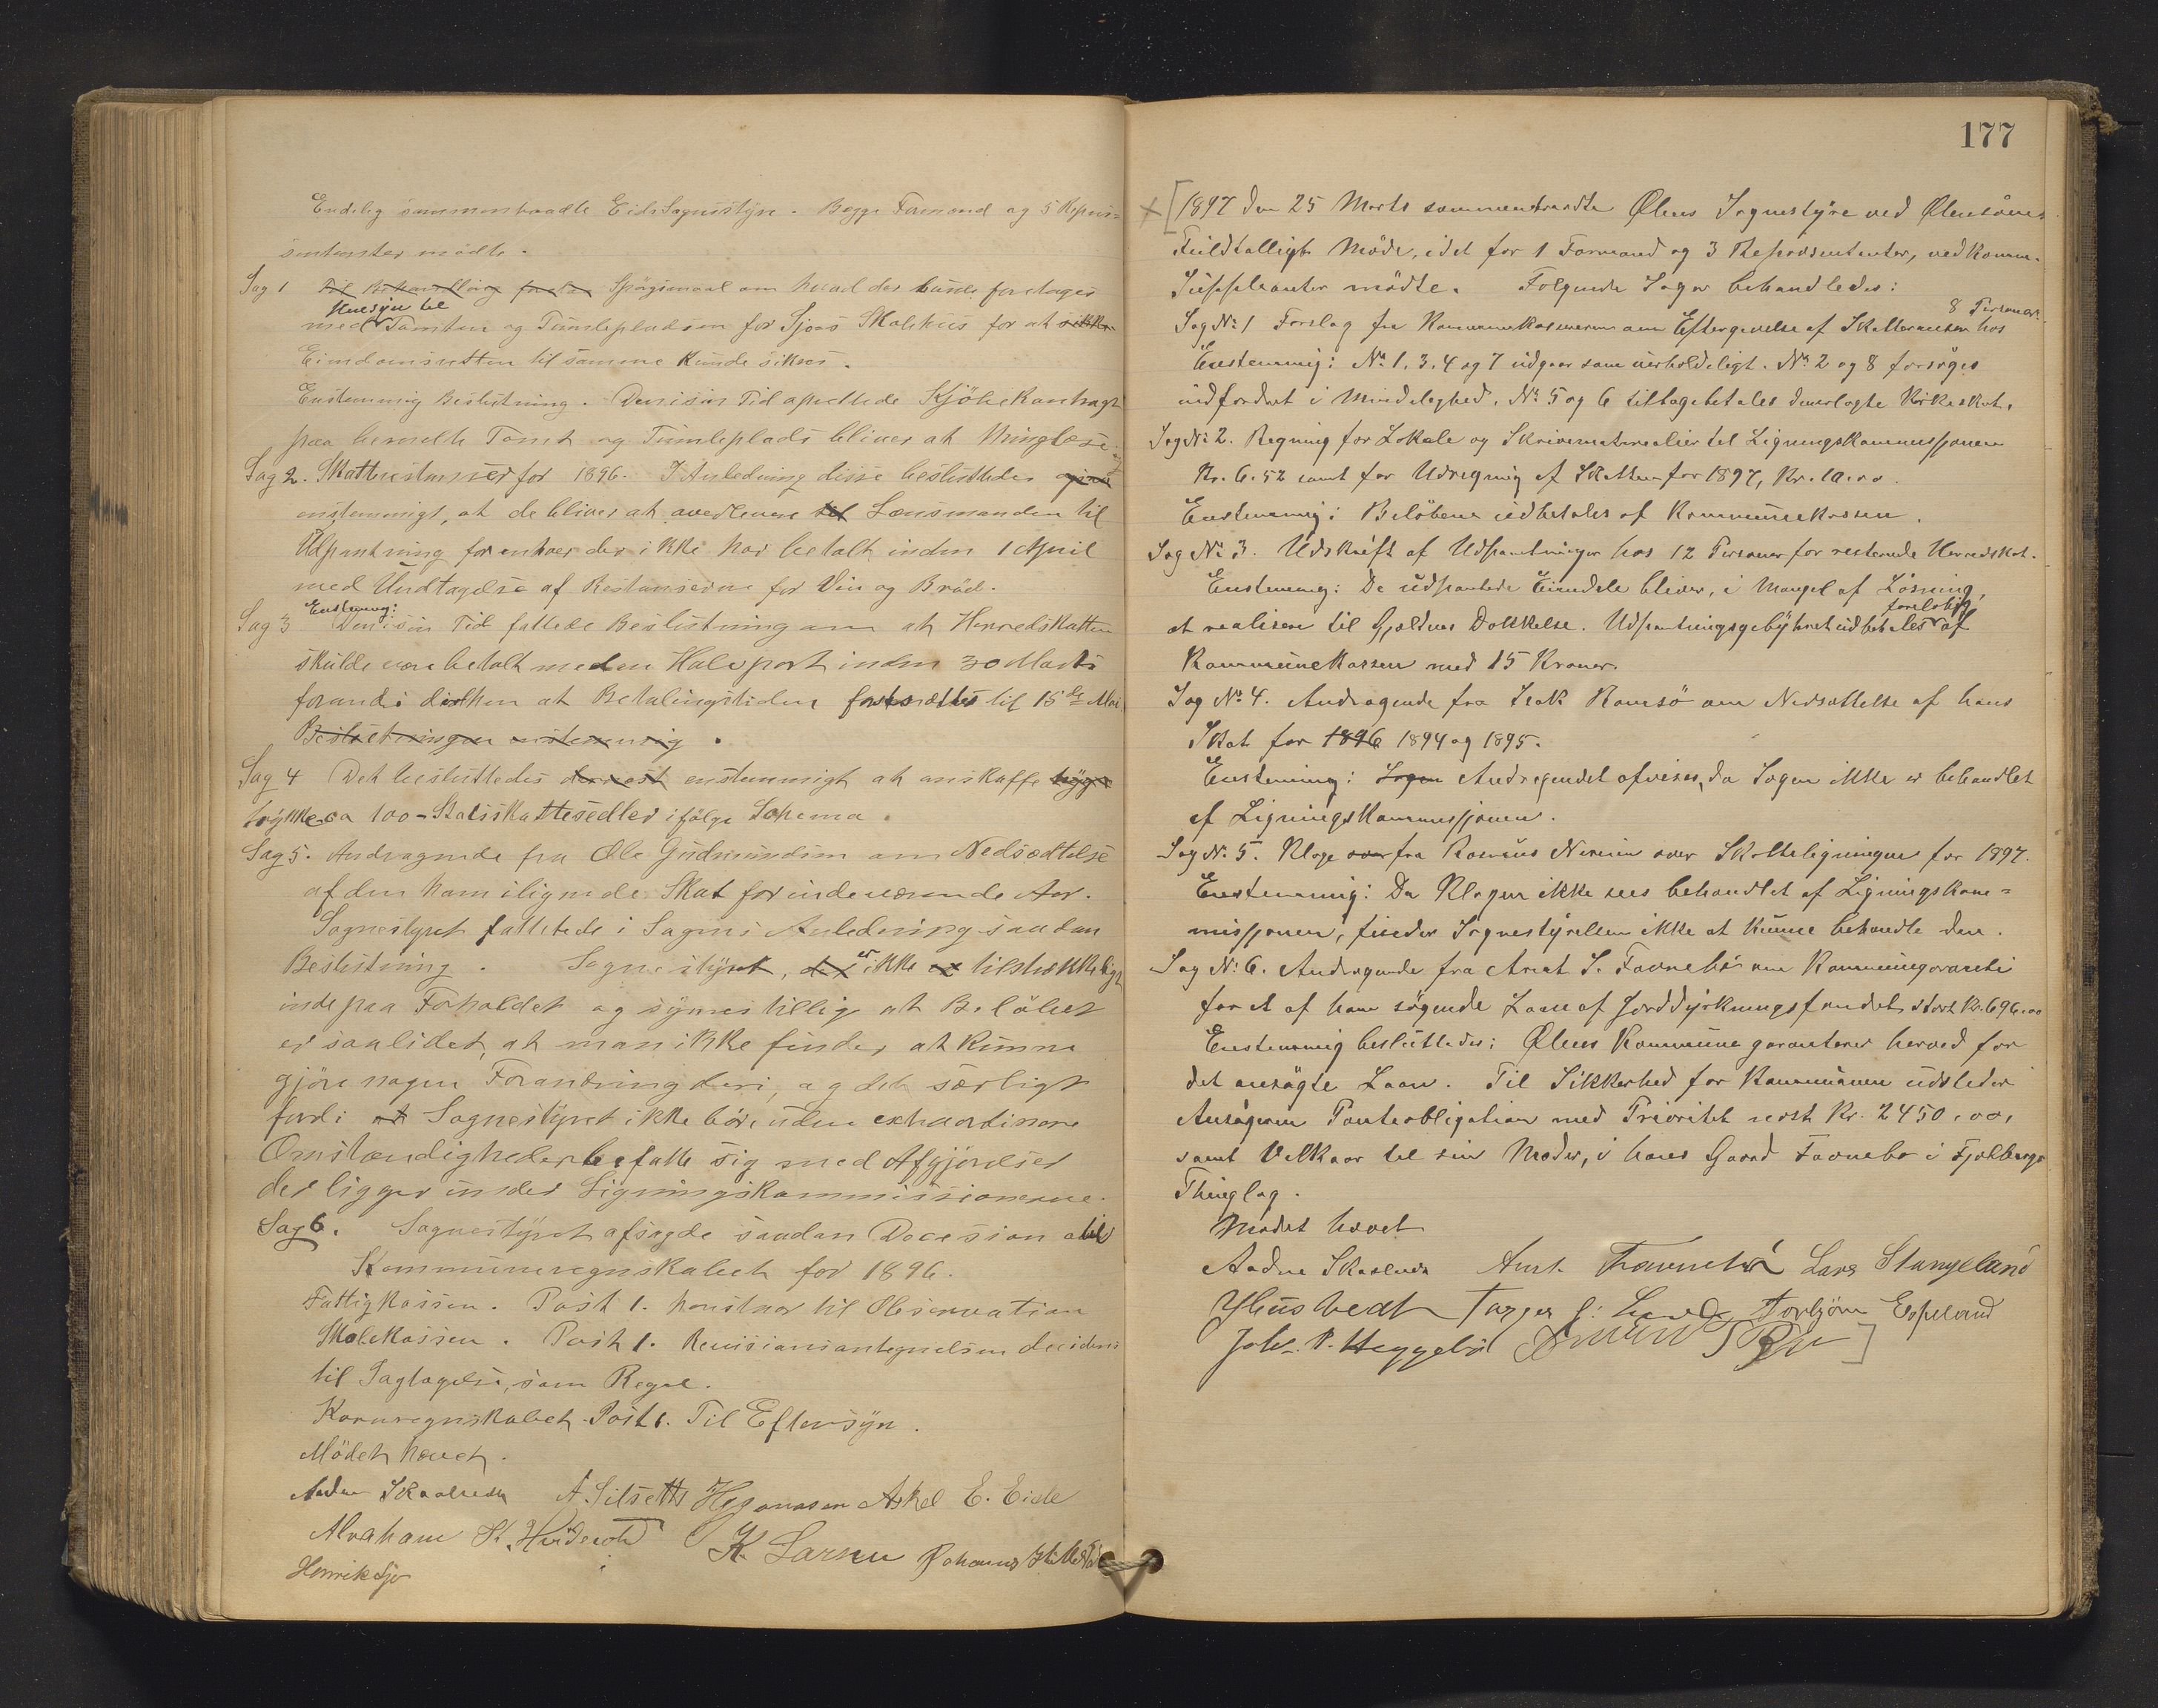 Endelig sammentraadte Eids Sognestyre. Begge Formænd og 5 Repræ-
sentanter mødte.
Sag 1 Til Behandling Spørgsmaal om hvad der burde foretages
med Hensyn til Tomten og Tumlepladsen for Sjoas Skolehus for at sikke
Eiendomsretten til samme kunde sikres.
Enstemmig Beslutning. Den i sin Tid oprettede Kjøbekontragt
paa bemeldte Tomt og Tumleplads bliver at thinglæse.
Sag 2. Skatterestanser for 1896. I Anledning disse besluttedes
enstemmigt, at de bliver at overlevere til Lensmanden til
Udpantning for enhver der ikke har betalt inden 1 April
med Undtagelse af Restanserne for Vin og Brød.
Enstemmig:
Sag 3 Den i sin Tid fattede Beslutning om at Herredskatten
skulde være betalt med en Halvpart inden 30 Marts
forandres derhen at Betalingstiden fortsættes til 15de Mai
Beslutningen enstemmig.
Sag 4 Det besluttedes dernest enstemmigt at anskaffe
trykke ca 100 - Statsskattesedler ifølge Schema.
Sag 5. Andragende fra Ole Gudmundsen om Nedsædtelse
af den ham ilignede Skat for indeværende Aar.
Sognestyret fattede i Sagens Anledning saadan
Beslutning. Sognestyret, er ikke tilstrekkeligt
inde paa Forholdet og synes tillige at Beløbet
er saa lidet, at man ikke finder at kunne
gjøre nogen Forandring deri, og det særligt
fordi at Sognestyret ikke bør, uden extraordinære
Omstændigheder befatte sig med Afgjørelser
der ligger under Ligningskommissionerne.
Sag 6. Sognestyret afsagde saadan Decesion til
Kommuneregnskabet for 1896.
Fattigkassen. Post 1. henstaar til Observation
Skolekassen. Post 1. Revisionsantegnelsen decideres
til Iagtagelse, som Regel.
Kornregnskabet. Post 1. Til Eftersyn.
Mødet hævet.
Aadne Skaalnes A. Silseth Askel E. Eide
Abraham K. Larsen Johannes
Henrik Sjo
177
[1897 den 25 Marts sammentraadte Ølens Sognestyre ved Ølensøen
Fuldtalligt Møde, idet for 1 Formand og 3 Repræsentanter, vedkomm.
Suppleanter mødte. Følgende Sager behandledes:
8 Personer.
Sag No 1 Forslag fra Kommunekassereren om Eftergivelse af Skatterester hos
Enstemmig: No 1. 3. 4 og 7 udgaar som uerholdeligt. No 2 og 8 forsøges
indfordret i Mindelighed. No 5 og 6 tilbagebetales den erlagte Kirkeskat.
Sag No 2. Regning for Lokale og Skrivematerialier til Ligningskommissjonen
Kr. 6.52 samt for Udregning af Skatten for 1897, Kr. 10.00.
Enstemmig: Beløbene udbetales af Kommunekassen.
Sag No 3. Udskrift af Udpantninger hos 12 Personer for resterende Herredskat.
Enstemmig: De udpantede Eiendele bliver, i Mangel af Løsning,
at realisere til Gjeldens Dækkelse. Udpantningsgebyhret udbetales foreløbig af
Kommunekassen med 15 Kroner.
Sag No 4. Andragende fra Isak Ramsø om Nedsættelse af hans
Skat for 1896 1894 og 1895.
Enstemmig: Sagen Andragendet afvises, da Sagen ikke er behandlet
af Ligningskommissjonen.
Sag No. 5. Klage over fra Rasmus over Skatteligningen for 1897.
Enstemmig: Da Klagen ikke sees behandlet af Ligningskom=
missjonen, finder Sognestyrelsen ikke at kunne behandle den.
Sag No: 6. Andragende fra Arnt S. Favnebø om Kommunegaranti
for et af ham søgende Laan af Jorddyrkningsfondet stort Kr. 696.00
Enstemmig besluttedes: Ølens Kommune garanterer herved for
det ansøgte Laan. Til Sikkerhed for Kommunen udsteder
Ansøgeren Panteobligation med Prioritet næst Kr. 2450.00,
samt Vilkaar til sin Moder, i hans Gaard Favnebø i Fjelberg
Thinglag.
Mødet hævet
Aadne Skaalnes Arnt. Favnebø Lars Stangeland
Torbjørn Espeland
Joh. P. Heggebø ]